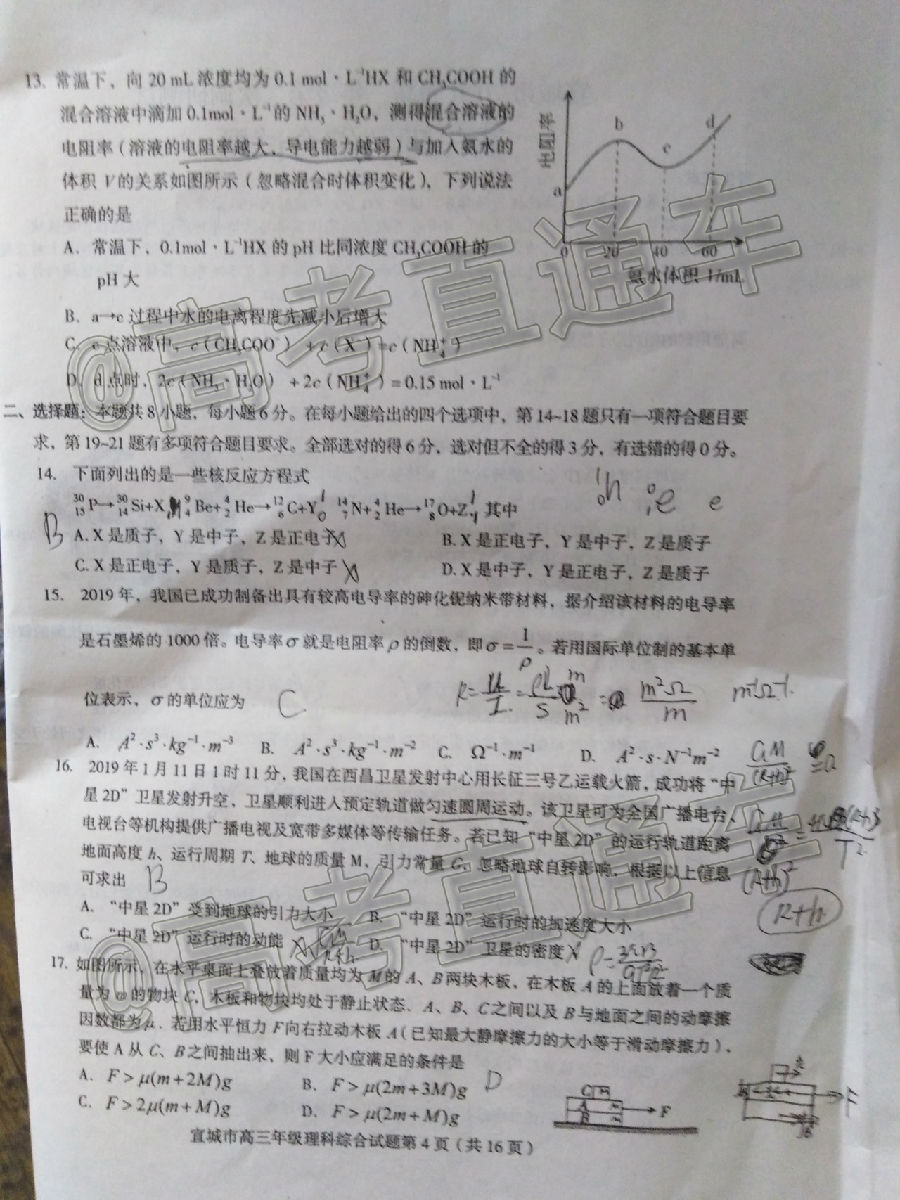 13. 常温下，向 20 mL 浓度均为 0.1 mol·L⁻¹HX 和 CH₃COOH 的
混合溶液中滴加 0.1mol·L⁻¹的 NH₃·H₂O，测得混合溶液的
电阻率（溶液的电阻率越大，导电能力越弱）与加入氨水的
体积 V 的关系如图所示（忽略混合时体积变化），下列说法
正确的是
A. 常温下，0.1mol·L⁻¹HX 的 pH 比同浓度 CH₃COOH 的
pH 大
B. a→c 过程中水的电离程度先减小后增大
C. c 点溶液中，c（CH₃COO⁻）+c（X⁻）=c（NH₄⁺）
D. d 点时，2c（NH₃·H₂O）+2c（NH₄⁺）=0.15 mol·L⁻¹
电阻率
a b c d
0 20 40 60
氨水体积 V/mL
二、选择题：本题共 8 小题，每小题 6 分。在每小题给出的四个选项中，第 14~18 题只有一项符合题目要
求，第 19~21 题有多项符合题目要求。全部选对的得 6 分，选对但不全的得 3 分，有选错的得 0 分。
14. 下面列出的是一些核反应方程式
³⁰₁₅P→³⁰₁₄Si+X，⁹₄Be+⁴₂He→¹²₆C+Y，¹⁴₇N+⁴₂He→¹⁷₈O+Z，其中
B
A. X 是质子，Y 是中子，Z 是正电子
B. X 是正电子，Y 是中子，Z 是质子
C. X 是正电子，Y 是质子，Z 是中子
D. X 是中子，Y 是正电子，Z 是质子
15. 2019 年，我国已成功制备出具有较高电导率的砷化铌纳米带材料，据介绍该材料的电导率
是石墨烯的 1000 倍。电导率 σ 就是电阻率 ρ 的倒数，即 σ=1/ρ。若用国际单位制的基本单
位表示，σ 的单位应为
C
A. A²·s³·kg⁻¹·m⁻³ B. A²·s³·kg⁻¹·m⁻² C. Ω⁻¹·m⁻¹ D. A²·s·N⁻¹m⁻²
16. 2019 年 1 月 11 日 1 时 11 分，我国在西昌卫星发射中心用长征三号乙运载火箭，成功将“中
星 2D”卫星发射升空，卫星顺利进入预定轨道做匀速圆周运动。该卫星可为全国广播电台、
电视台等机构提供广播电视及宽带多媒体等传输任务。若已知“中星 2D”的运行轨道距离
地面高度 h、运行周期 T、地球的质量 M，引力常量 G，忽略地球自转影响，根据以上信息
可求出
B
A. “中星 2D”受到地球的引力大小 B. “中星 2D”运行时的加速度大小
C. “中星 2D”运行时的动能 D. “中星 2D”卫星的密度
R+h
17. 如图所示，在水平桌面上叠放着质量均为 M 的 A、B 两块木板，在木板 A 的上面放着一个质
量为 m 的物块 C，木板和物块均处于静止状态. A、B、C 之间以及 B 与地面之间的动摩擦
因数都为 μ. 若用水平恒力 F 向右拉动木板 A（已知最大静摩擦力的大小等于滑动摩擦力），
要使 A 从 C、B 之间抽出来，则 F 大小应满足的条件是
A. F＞μ(m+2M)g B. F＞μ(2m+3M)g
D
C. F＞2μ(m+M)g D. F＞μ(2m+M)g
C
A
B
F
宣城市高三年级理科综合试题第 4 页（共 16 页）
@高考直通车
@高考直通车